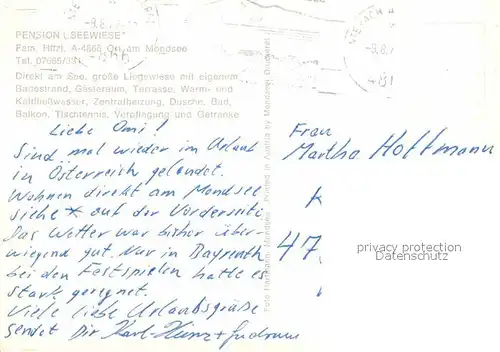 PENSION "SEEWIESE"
Fam. Hitzl, A-4865 Ort am Mondsee
Tel. 07665/
Direkt am See, große Liegewiese mit eigenem
Badestrand, Gästeraum, Terrasse, Warm- und
Kaltfließwasser, Zentralheizung, Dusche, Bad,
Balkon, Tischtennis, Verpflegung und Getränke
Liebe Omi!
Sind mal wieder im Urlaub
in Österreich gelandet.
Wohnen direkt am Mondsee
siehe * auf der Vorderseite
Das Wetter war bisher über-
wiegend gut. Nur in Bayreuth
bei den Festspielen hatte es
stark geregnet.
Viele liebe Urlaubsgrüße
sendet Dir Karl-Heinz + Gudrun
Printed in Austria by Mondseer Druckerei
Frau
Martha Hoffmann
K
47
privacy protection
Datenschutz